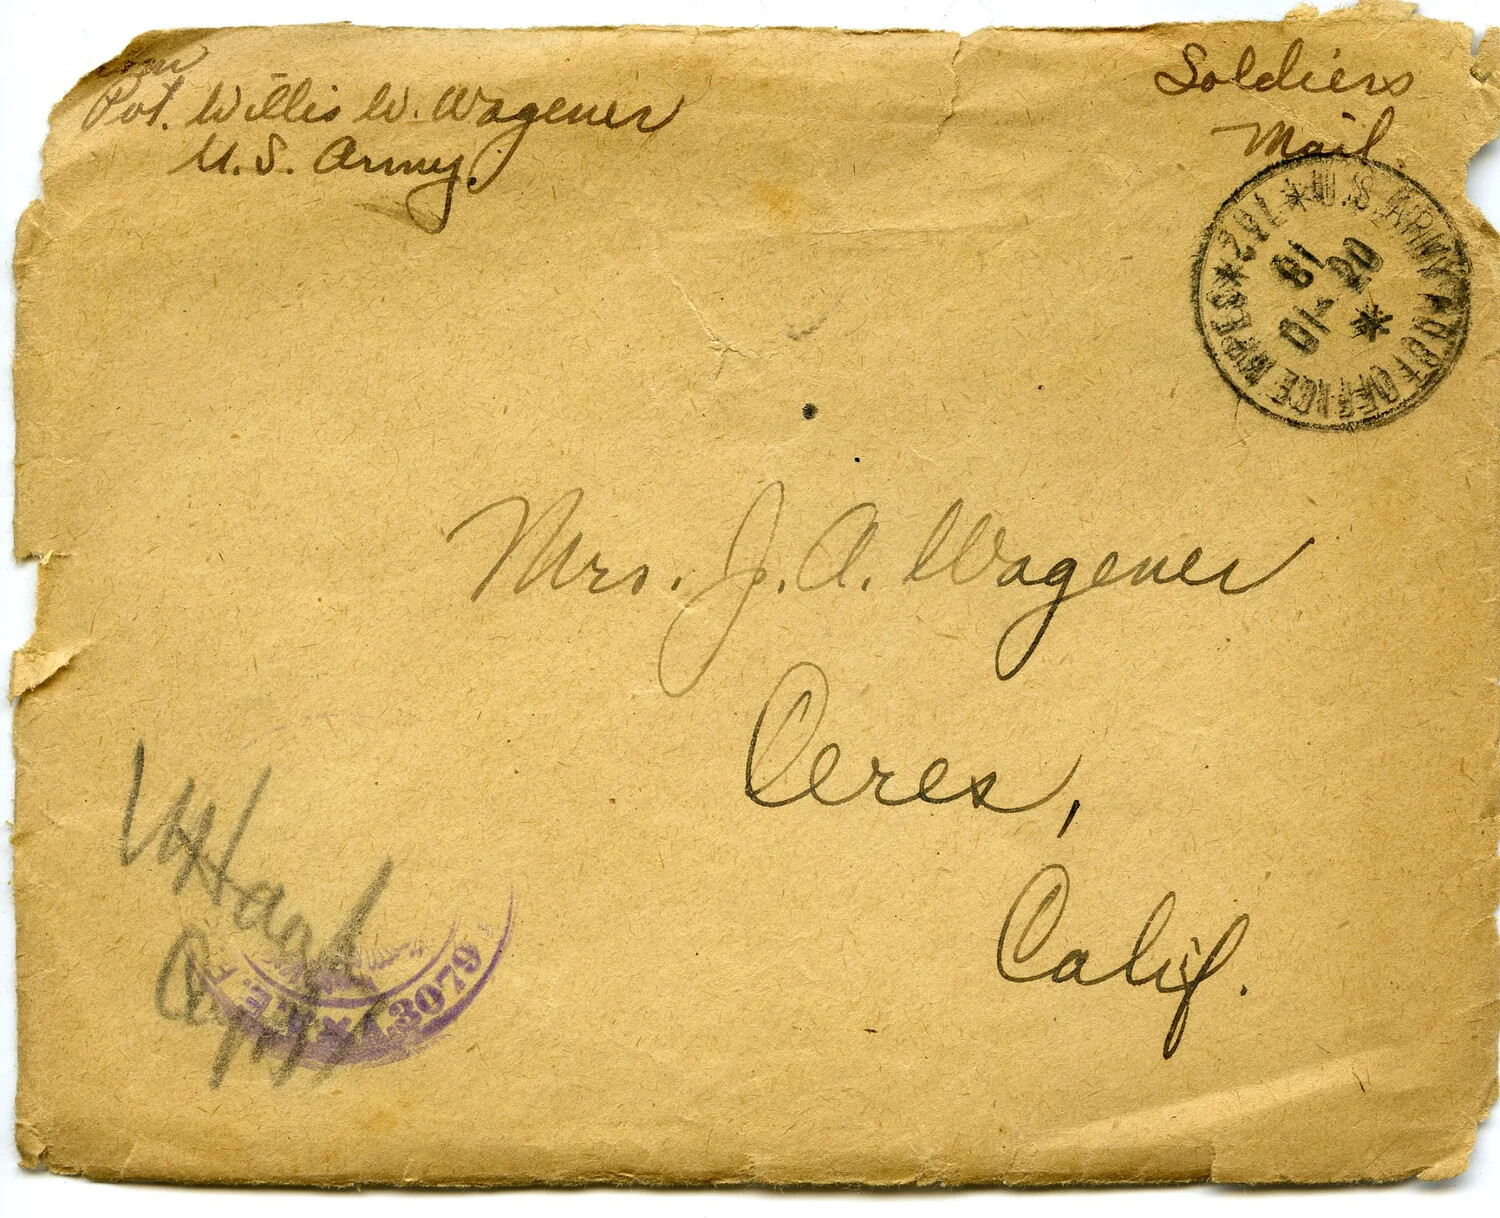 Pvt. Willis W. Wagener
U.S. Army.
Soldiers
Mail.
* U.S. ARMY POST OFFICE M.P.E.S * 702
18
20
Mrs. J. A. Wagener
Ceres,
Calif.
A.E.F. * A.3079